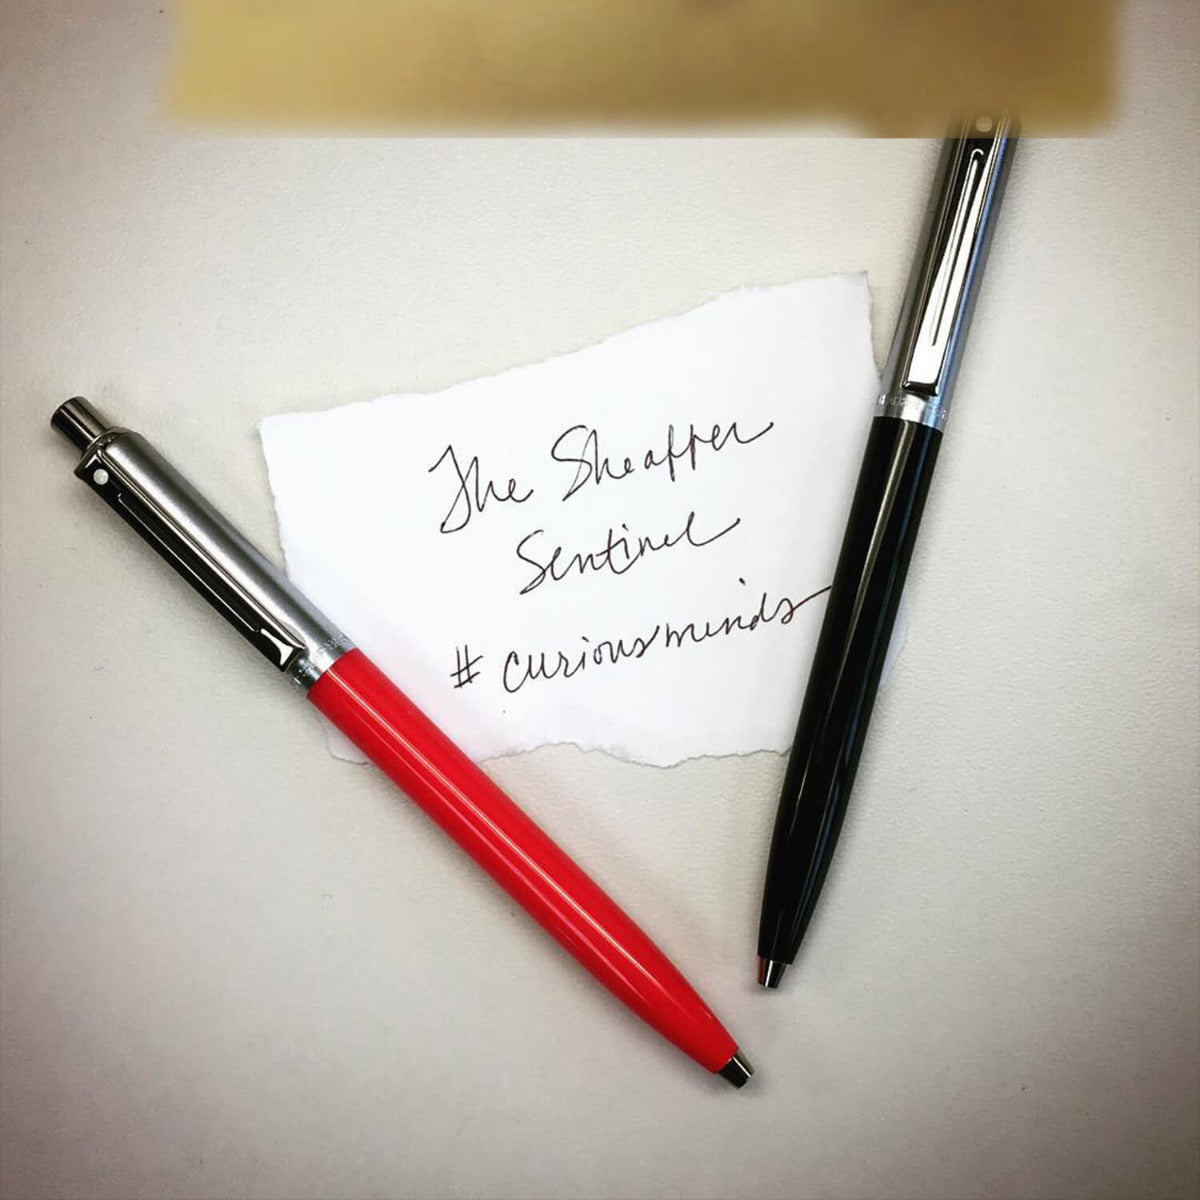 The Sheaffer
Sentinel
#curiousminds